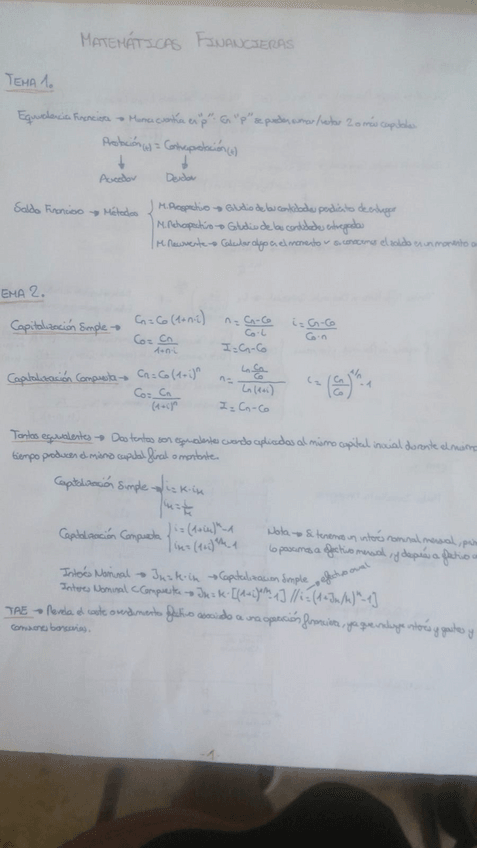 MATEMÁTICAS FINANCIERAS
TEMA 1.
Equivalencia Financiera → Misma cuantía en "p". En "p" se pueden sumar/restar 2 o más capitales
Prestación(s) = Contraprestación(s)
↓ ↓
Acreedor Deudor
Saldo Financiero → Métodos
M. Prospectivo → Estudio de las cantidades pendientes de entregar
M. Retrospectivo → Estudio de las cantidades entregadas
M. Recurrente → Calcular algo en el momento si conocemos el saldo en un momento
EMA 2.
Capitalización Simple → Cn = Co (1+n·i) n = Cn-Co / Co·i i = Cn-Co / Co·n
Co = Cn / 1+n·i I = Cn-Co
Capitalización Compuesta → Cn = Co (1+i)^n n = Ln Cn/Co / Ln (1+i) i = (Cn/Co)^1/n - 1
Co = Cn / (1+i)^n I = Cn-Co
Tantos equivalentes → Dos tantos son equivalentes cuando aplicados al mismo capital inicial durante el mismo
tiempo producen el mismo capital final o montante.
Capitalización Simple → i = k·ik
ik = i/k
Capitalización Compuesta i = (1+ik)^k - 1 Nota → Si tenemos un interés nominal mensual,
ik = (1+i)^1/k - 1 lo pasamos a efectivo mensual, y después a efectivo
Interés Nominal → Jk = k·ik → Capitalización Simple efectivo anual
Interés Nominal C. Compuesta → Jk = k·[(1+i)^1/k - 1] // i = (1+Jk/k)^k - 1]
TAE → Revela el coste o rendimiento efectivo asociado a una operación financiera, ya que incluye interés y gastos y
comisiones bancarias.
-1-